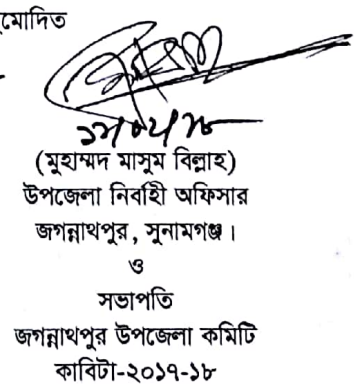 মোদিত
(মুহাম্মদ মাসুম বিল্লাহ)
উপজেলা নির্বাহী অফিসার
জগন্নাথপুর, সুনামগঞ্জ।
ও
সভাপতি
জগন্নাথপুর উপজেলা কমিটি
কাবিটা-২০১৭-১৮